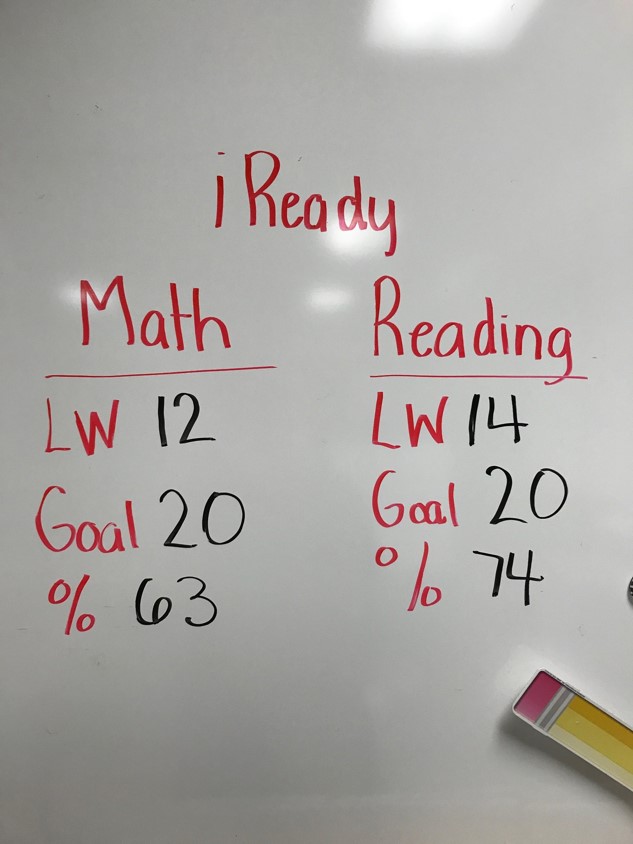 iReady
Math
LW 12
Goal 20
% 63
Reading
LW 14
Goal 20
% 74